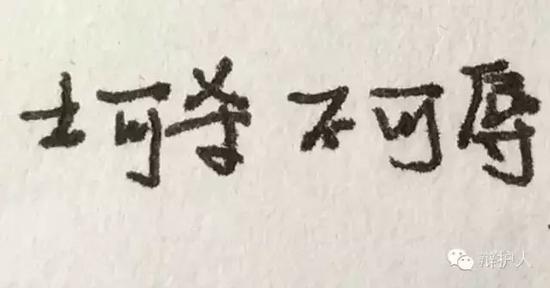 士可杀 不可辱
辩护人